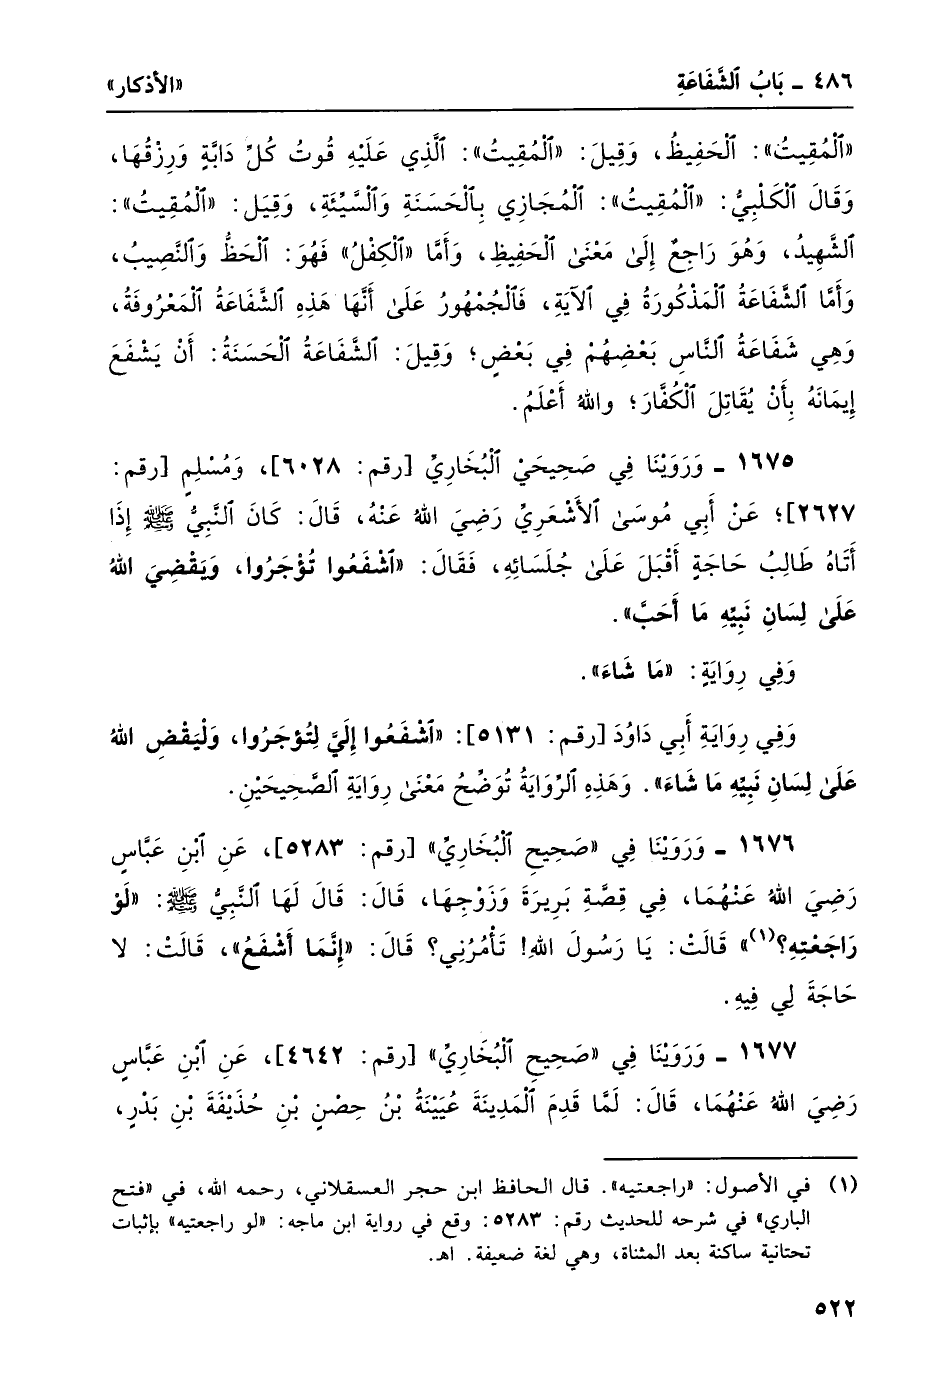 ٤٨٦ ـ بَابُ ٱلشَّفَاعَةِ «الأذكار»
«ٱلْمُقِيتُ»: ٱلْحَفِيظُ، وَقِيلَ: «ٱلْمُقِيتُ»: ٱلَّذِي عَلَيْهِ قُوتُ كُلِّ دَابَّةٍ وَرِزْقُهَا،
وَقَالَ ٱلْكَلْبِيُّ: «ٱلْمُقِيتُ»: ٱلْمُجَازِي بِٱلْحَسَنَةِ وَٱلْسَّيِّئَةِ، وَقِيَل: «ٱلْمُقِيتُ»:
ٱلشَّهِيدُ، وَهُوَ رَاجِعٌ إِلَىٰ مَعْنَىٰ ٱلْحَفِيظِ، وَأَمَّا «ٱلْكِفْلُ» فَهُوَ: ٱلْحَظُّ وَٱلنَّصِيبُ،
وَأَمَّا ٱلشَّفَاعَةُ ٱلْمَذْكُورَةُ فِي ٱلآيَةِ، فَٱلْجُمْهُورُ عَلَىٰ أَنَّهَا هَذِهِ ٱلشَّفَاعَةُ ٱلْمَعْرُوفَةُ،
وَهِي شَفَاعَةُ ٱلنَّاسِ بَعْضِهُمْ فِي بَعْضٍ؛ وَقِيلَ: ٱلشَّفَاعَةُ ٱلْحَسَنَةُ: أَنْ يَشْفَعَ
إِيمَانَهُ بِأَنْ يُقَاتِلَ ٱلْكُفَّارَ؛ واللهُ أَعْلَمُ.
١٦٧٥ ـ وَرَوَيْنَا فِي صَحِيحَيْ ٱلْبُخَارِيِّ [رقم: ٦٠٢٨]، وَمُسْلِمٍ [رقم:
٢٦٢٧]؛ عَنْ أَبِي مُوسَىٰ ٱلأَشْعَرِيِّ رَضِيَ اللهُ عَنْهُ، قَالَ: كَانَ ٱلنَّبِيُّ ﷺ إِذَا
أَتَاهُ طَالِبُ حَاجَةٍ أَقْبَلَ عَلَىٰ جُلَسَائِهِ، فَقَالَ: «ٱشْفَعُوا تُؤْجَرُوا، وَيَقْضِيَ اللهُ
عَلَىٰ لِسَانِ نَبِيِّهِ مَا أَحَبَّ».
وَفِي رِوَايَةٍ: «مَا شَاءَ».
وَفِي رِوَايَةِ أَبِي دَاوُدَ [رقم: ٥١٣١]: «ٱشْفَعُوا إِلَيَّ لِتُؤْجَرُوا، وَلْيَقْضِ اللهُ
عَلَىٰ لِسَانِ نَبِيِّهِ مَا شَاءَ». وَهَذِهِ ٱلرِّوَايَةُ تُوَضِّحُ مَعْنَىٰ رِوَايَةِ ٱلصَّحِيحَيْنِ.
١٦٧٦ ـ وَرَوَيْنَا فِي «صَحِيحِ ٱلْبُخَارِيِّ» [رقم: ٥٢٨٣]، عَنِ ٱبْنِ عَبَّاسٍ
رَضِيَ اللهُ عَنْهُمَا، فِي قِصَّةِ بَرِيرَةَ وَزَوْجِهَا، قَالَ: قَالَ لَهَا ٱلنَّبِيُّ ﷺ: «لَوْ
رَاجَعْتِهِ؟(١)» قَالَتْ: يَا رَسُولَ اللهِ! تَأْمُرُنِي؟ قَالَ: «إِنَّمَا أَشْفَعُ»، قَالَتْ: لا
حَاجَةَ لِي فِيهِ.
١٦٧٧ ـ وَرَوَيْنَا فِي «صَحِيحِ ٱلْبُخَارِيِّ» [رقم: ٤٦٤٢]، عَنِ ٱبْنِ عَبَّاسٍ
رَضِيَ اللهُ عَنْهُمَا، قَالَ: لَمَّا قَدِمَ ٱلْمَدِينَةَ عُيَيْنَةُ بْنُ حِصْنِ بْنِ حُذَيْفَةَ بْنِ بَدْرٍ،
(١) في الأصول: «راجعتيه». قال الحافظ ابن حجر العسقلاني، رحمه الله، في «فتح
الباري» في شرحه للحديث رقم: ٥٢٨٣: وقع في رواية ابن ماجه: «لو راجعتيه» بإثبات
تحتانية ساكنة بعد المثناة، وهي لغة ضعيفة. اهـ.
٥٢٢